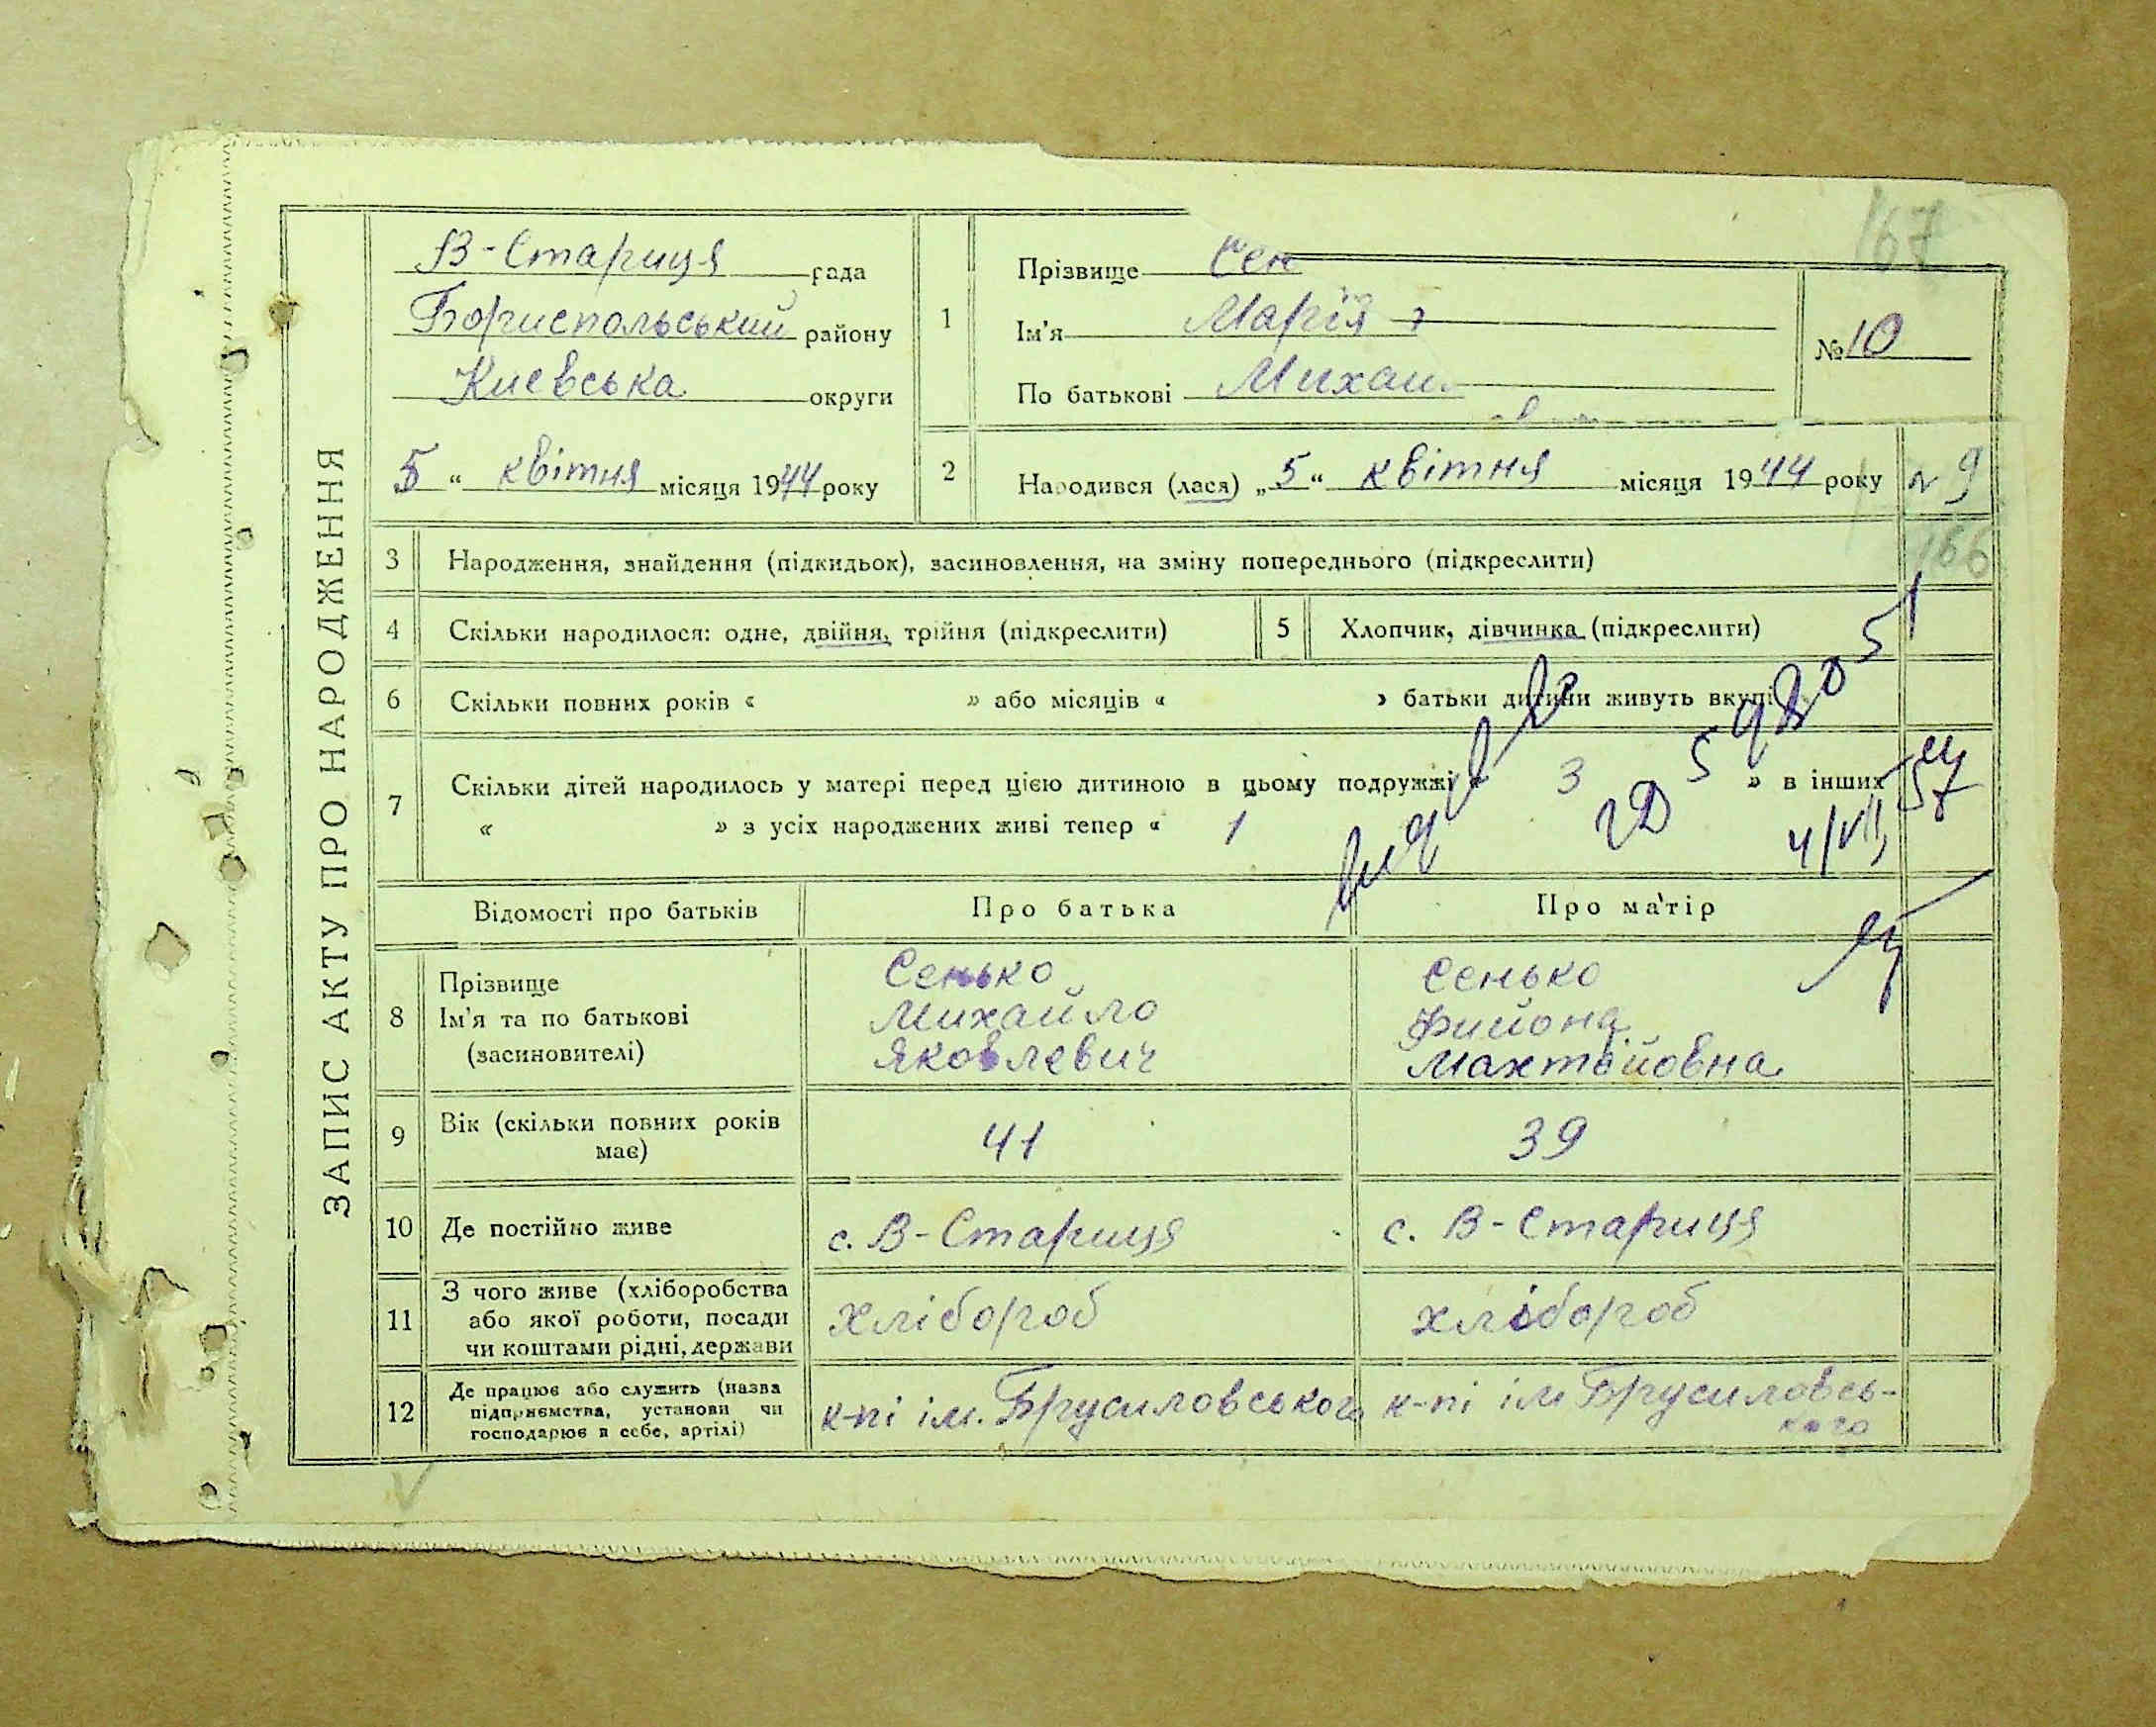 ЗАПИС АКТУ ПРО НАРОДЖЕННЯ
167
В-Стариця рада
Бориспольський району
Киевська округи
5 " квітня місяця 1944 року
1
Прізвище Сен
Ім'я Марія
По батькові Михаи
№ 10
2 Народився (лася) „5" квітня місяця 1944 року
N 9
166
3 Народження, знайдення (підкидьок), засиновлення, на зміну попереднього (підкреслити)
4 Скільки народилося: одне, двійня, трійня (підкреслити)
5 Хлопчик, дівчинка (підкреслити)
6 Скільки повних років « » або місяців « » батьки дитини живуть вкупі
7 Скільки дітей народилось у матері перед цією дитиною в цьому подружжі 3 » в інших
« » з усіх народжених живі тепер « 1
4/VII 57
Відомості про батьків
Про батька
Про матір
8 Прізвище
Ім'я та по батькові
(засиновителі)
Сенько
Михайло
Яковлевич
Сенько
Махтейовна
9 Вік (скільки повних років
має)
41
39
10 Де постійно живе
с. В-Стариця
с. В-Стариця
11 З чого живе (хліборобства
або якої роботи, посади
чи коштами рідні, держави
хлібороб
хлібороб
12 Де працює або служить (назва
підприємства, установи чи
господарює в себе, артілі)
к-пі ім. Брусиловського
к-пі ім Брусиловсь-
кого